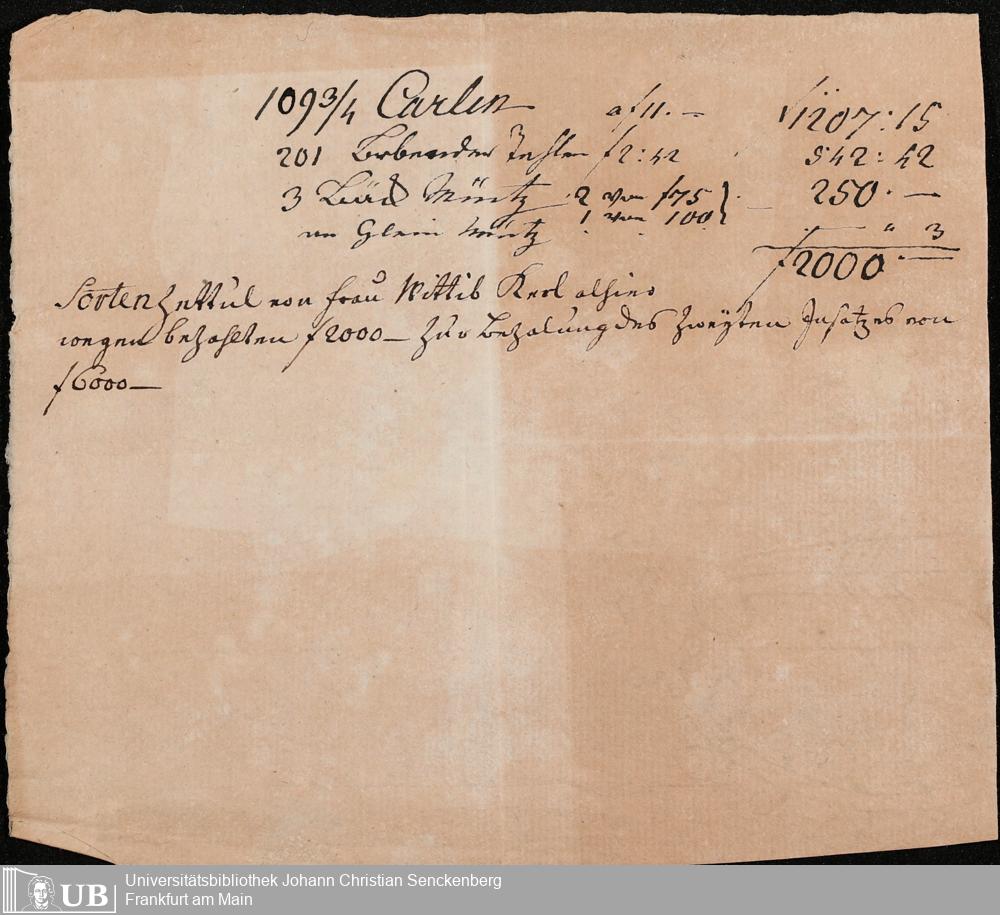 109 3/4 Carlin a f 11. — f 1207:15
201 Brabender Tahler f 2:42 542:42
3 Säck Müntz 2 von f 75 } — 250. —
1 von 100
an Klein Müntz . . . — " 3
f 2000. —
Sortenzettul von Frau Wittib Kerl alhier
wegen bezahlten f 2000 — zur Bezalung des zweyten Insatzes von
f 6000 —
UB
Universitätsbibliothek Johann Christian Senckenberg
Frankfurt am Main